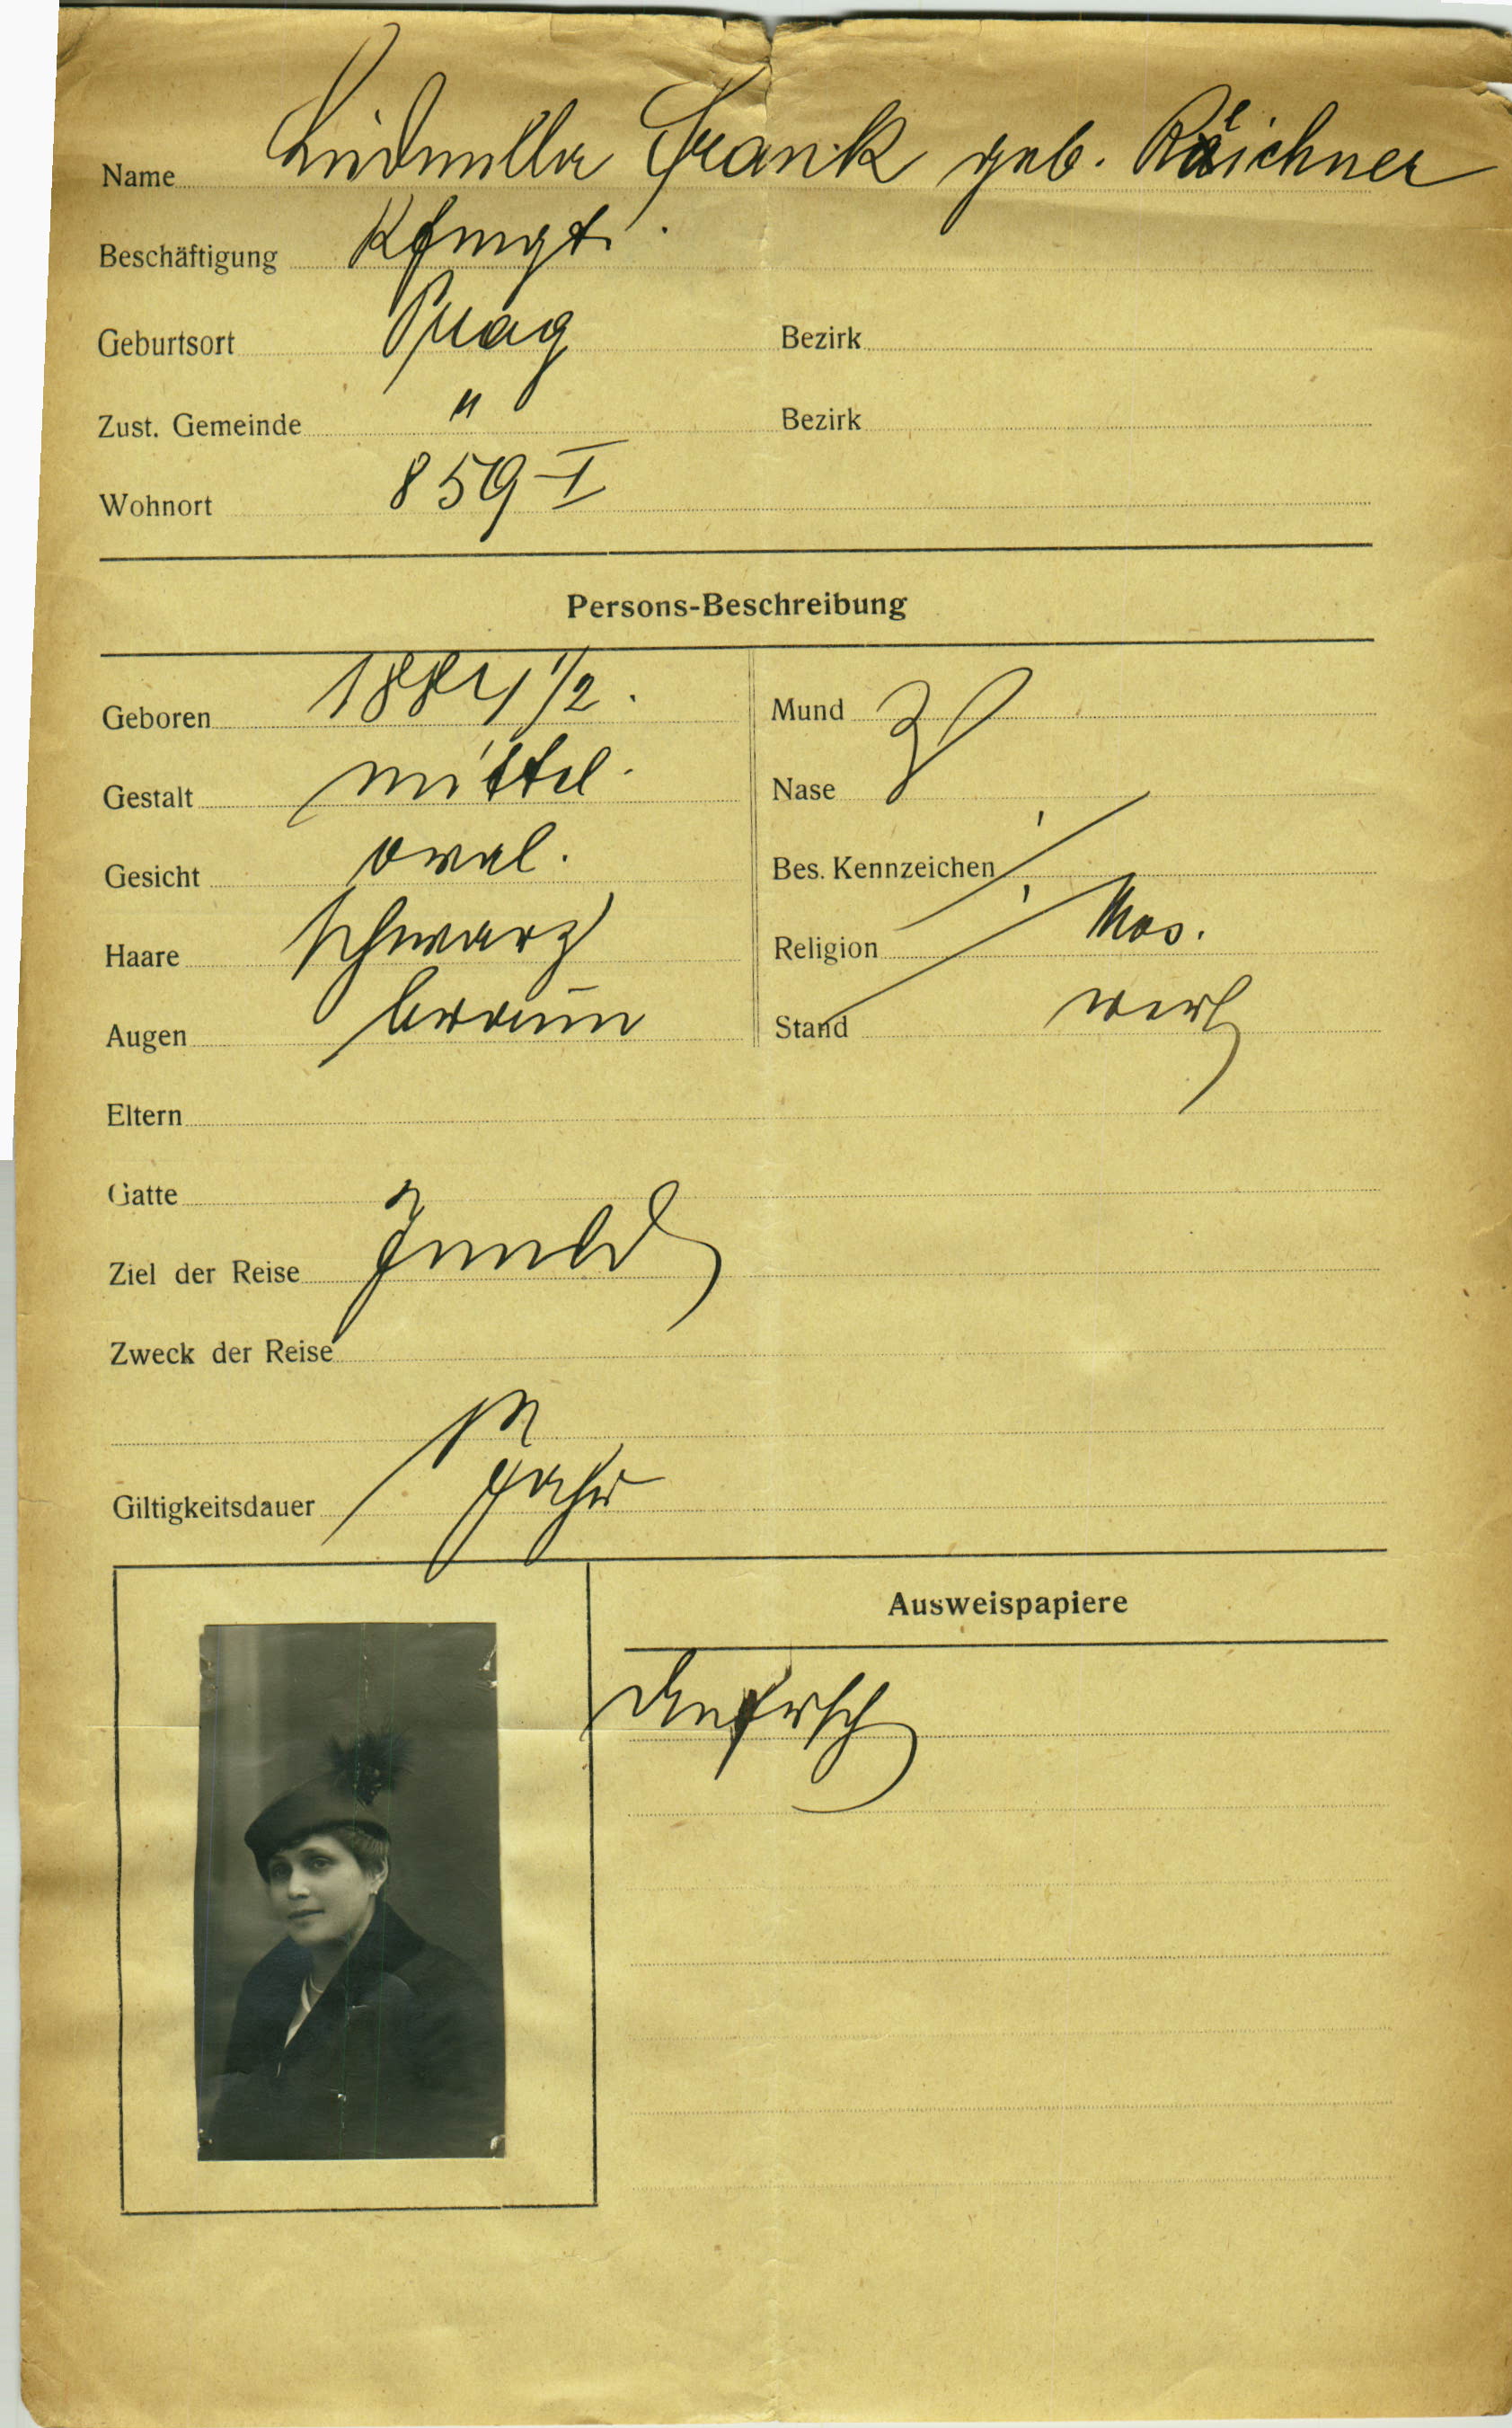 Name Ludmilla Frank geb. Reichner
Beschäftigung Kfmgt.
Geburtsort Prag Bezirk
Zust. Gemeinde " Bezirk
Wohnort 859-I
Persons-Beschreibung
Geboren 1884 1/2. Mund
Gestalt mittel. Nase
Gesicht oval. Bes. Kennzeichen
Haare schwarz Religion Mos.
Augen braun Stand verh
Eltern
Gatte
Ziel der Reise Inland
Zweck der Reise
Giltigkeitsdauer 1 Jahr
Ausweispapiere